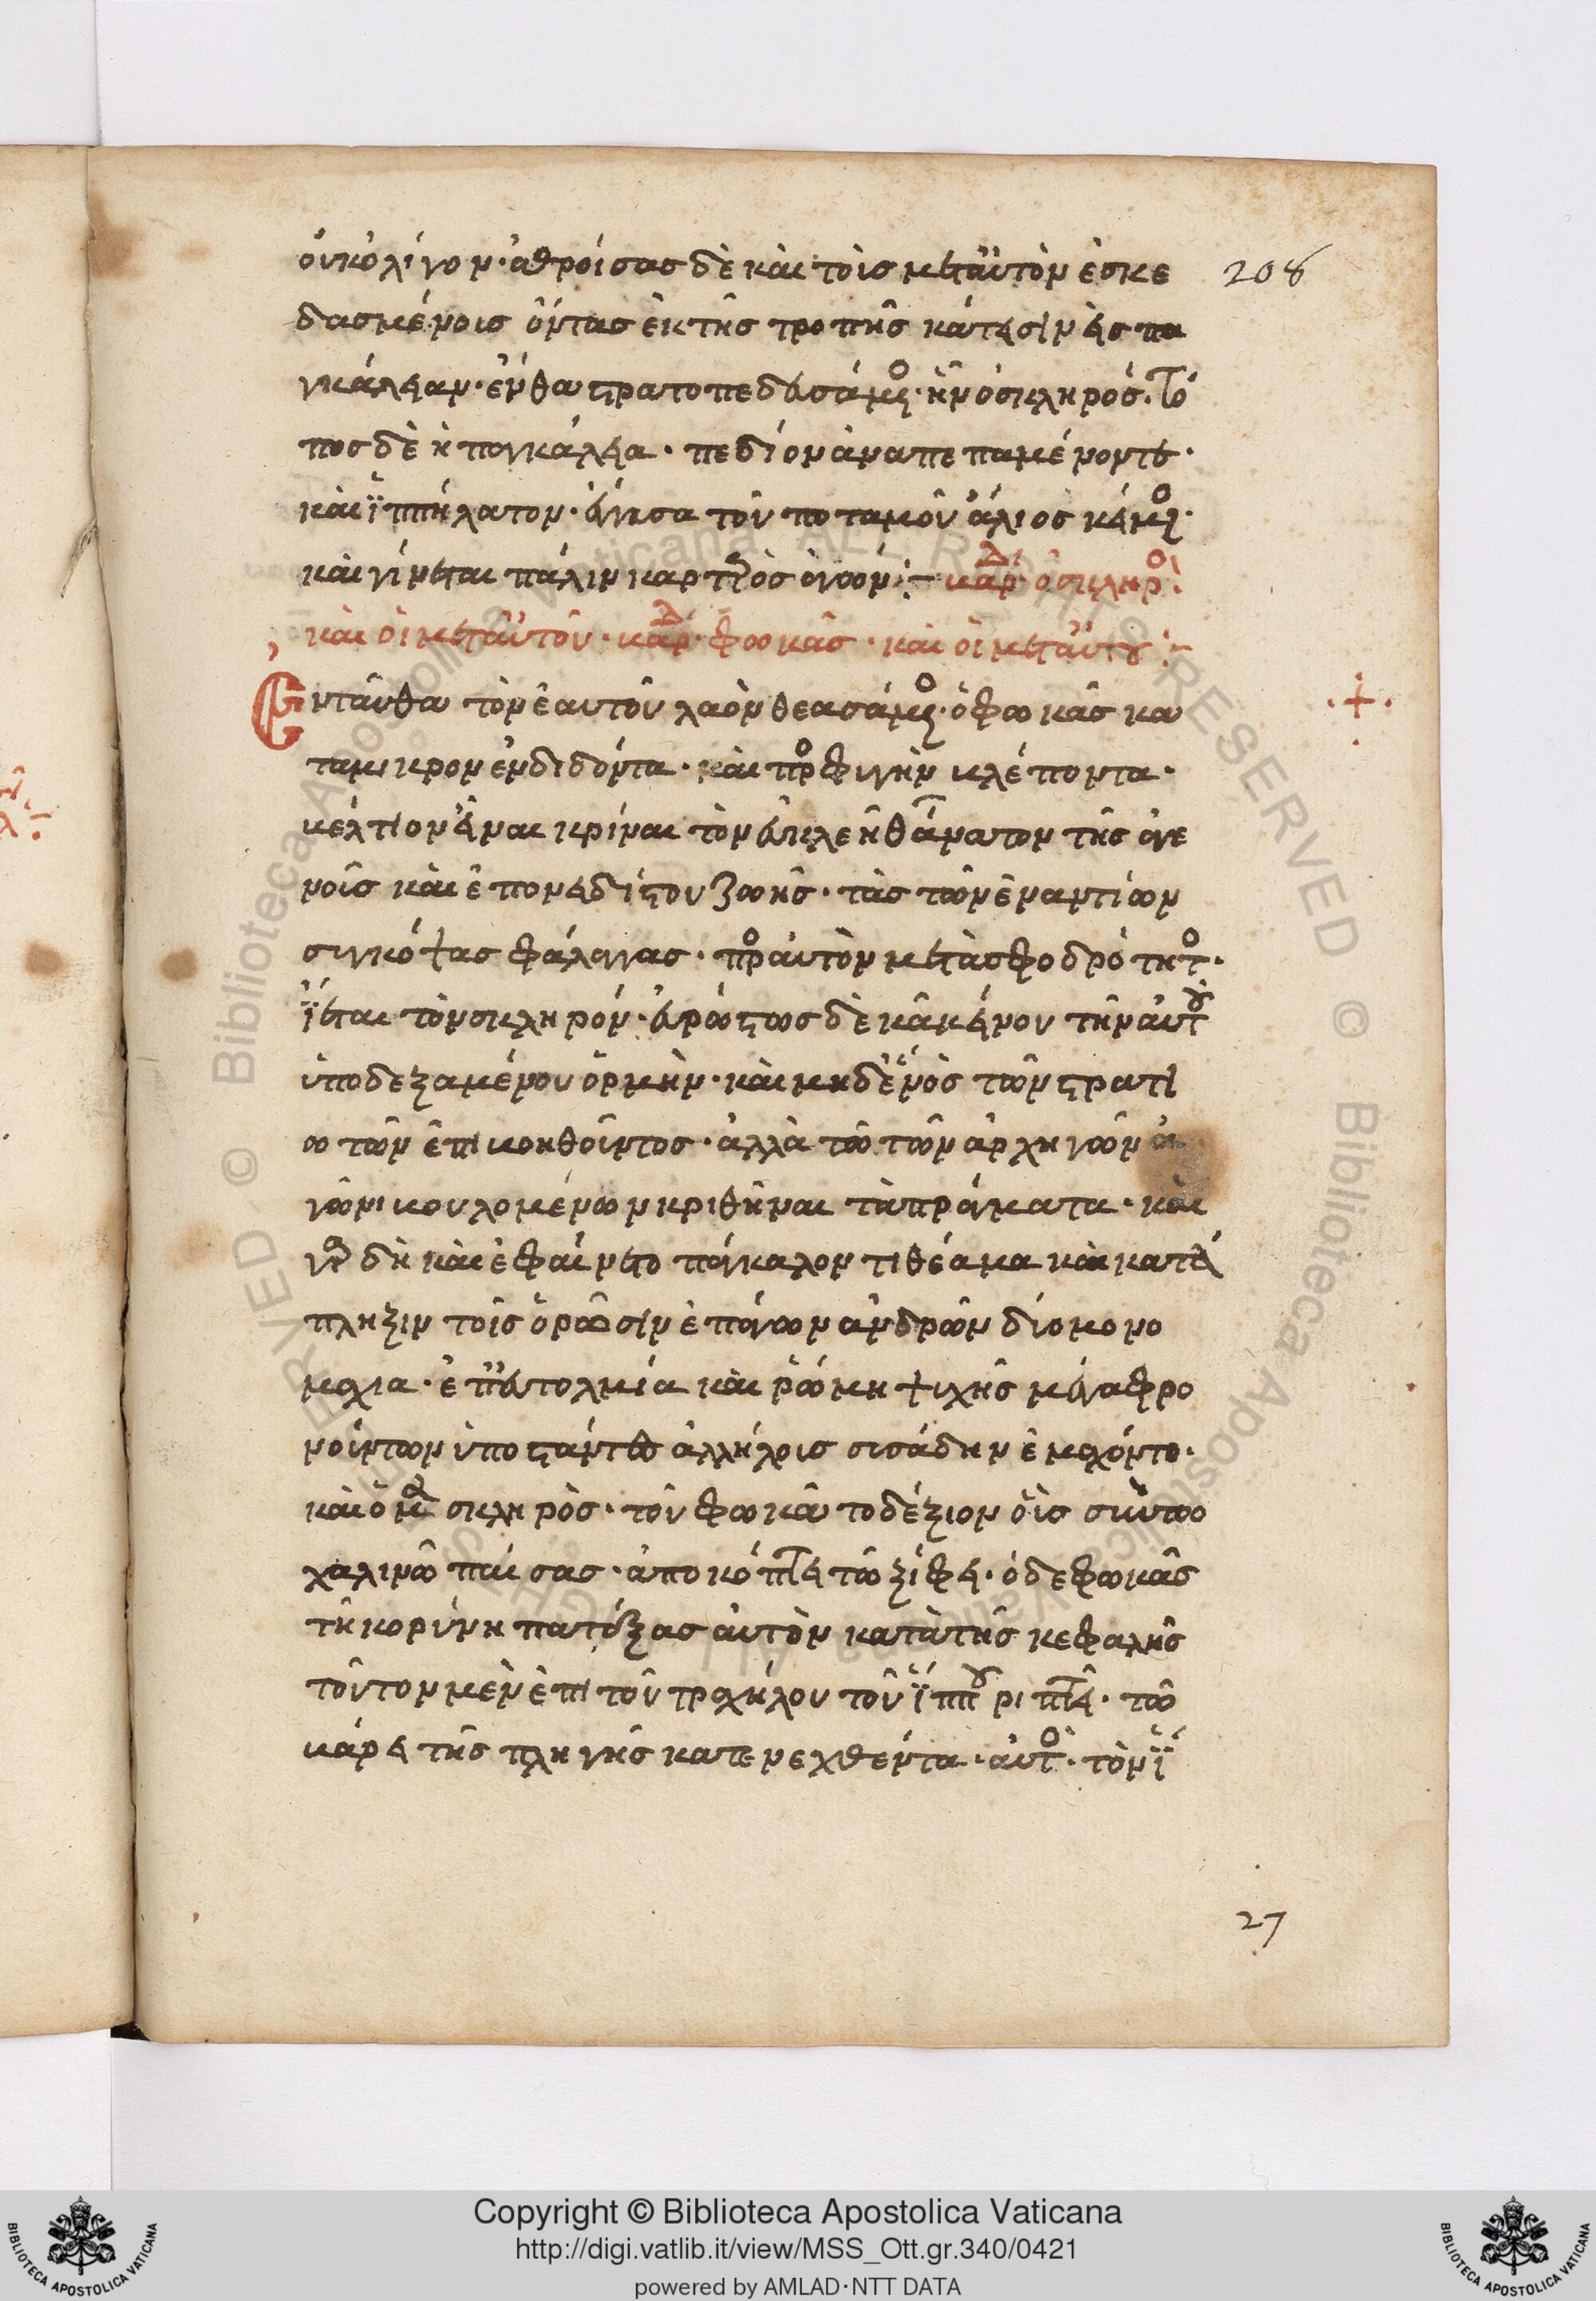 οὐκολίγον· ἀθροίσας δὲ καὶ τοὺς μεταὐτὸν ἐσκε
208
δασμένοις ὄντας ἐκ τῆς τροπῆς κάτεσιν ἐς πα
γκάλειαν· ἔνθα στρατοπεδευσάμενος· ἦν ὁ σκληρός· τό
πος δὲ ἡ παγκάλεια· πεδίον ἀναπεπταμένον τε·
καὶ ἵππήλατον· ἔγγισα τοῦ ποταμοῦ ἅλυος κείμενος·
καὶ γίνεται πάλιν καρτερὸς ἀγών:- βάρδας ὁ σκληρὸς
καὶ οἱ μεταὐτοῦ· βάρδας φωκᾶς· καὶ οἱ μεταὐτοῦ:-
Ενταῦθα τὸν ἑαυτοῦ λαὸν θεασάμενος· ὁ φωκᾶς κα
ταμικρον ἐνδιδόντα· καὶ πρὸς φυγὴν βλέποντα·
βέλτιον εἶναι κρίναι τὸν εὐκλεῆ θάνατον τῆς ἀγε
νοῦς καὶ ἐπονειδίστου ζωῆς· τὰς τῶν ἐναντίων
συγκόψας φάλαγγας· πρὸς αὐτὸν μετὰ σφοδρότητος·
ἵεται τὸν σκληρόν· ἐρρώστως δὲ κἀκείνου τὴν αὐτοῦ
ὑποδεξαμένου ὁρμὴν· καὶ μηδενὸς τῶν στρατι
ωτῶν ἐπιβοηθοῦντος· ἀλλὰ τῶ τῶν ἀρχηγῶν ἀ
γῶνι βουλομένων κριθῆναι τὰ πράγματα· καὶ
ἦν δὴ καὶ ἐφαίνετο πάγκαλον τι θέαμα καὶ κατά
πληξιν τοῖς ὁρῶσιν ἐπάγων ἀνδρῶν δύο μονο
μαχία· ἐπευτολμία καὶ ῥώμη ψυχῆς μέγα φρο
νούντων ὑποστάντες ἀλλήλοις συσάδην ἐμάχοντο·
καὶ ὁ μὲν σκληρὸς· τοῦ φωκᾶ το δέξιον οὖς σὺν τῶ
χαλινῶ παίσας· ἀποκόπτει τῶ ξίφει· ὁ δε φωκᾶς
τῆ κορύνη πατάξας αὐτὸν κατὰ τῆς κεφαλῆς
τοῦτον μὲν ἐπὶ τοῦ τραχήλου τοῦ ἵππου ριπτεῖ· τῶ
βάρει τῆς πληγῆς κατενεχθέντα· αὐτὸς· τὸν ἵ
27
Copyright © Biblioteca Apostolica Vaticana
http://digi.vatlib.it/view/MSS_Ott.gr.340/0421
powered by AMLAD·NTT DATA